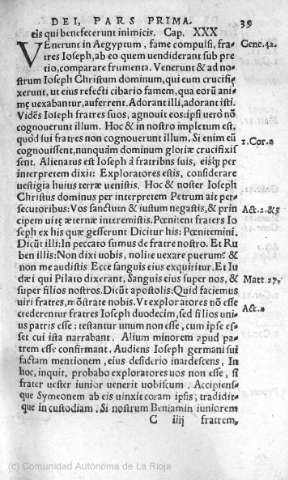 DEI, PARS PRIMA. 39
eis qui benefecerunt inimicis. Cap. XXX
VEnerunt in Aegyptum, fame compulsi, fra- Gene.42.
tres Ioseph, ab eo quem vendiderant sub pre
tio, comparare frumenta. Venerunt & ad no
strum Iesum Christum dominum, qui eum crucifi-
xerunt, ut eius refecti cibario famem, qua eorū ani-
mę uexabantur, auferrent. Adorant illi, adorant isti.
Vidēs Ioseph fratres suos, agnouit eos: ipsi uerò nō
cognouerunt illum. Hoc & in nostro impletum est,
quòd sui fratres non cognouerunt illum. Si enim eū
cognouissent, nunquàm dominum gloriæ crucifixis 1.Cor.2
sent. Alienatus est Ioseph à fratribus suis, eisq́ per
interpretem dixit: Exploratores estis, considerare
uestigia huius terræ venistis. Hoc & noster Ioseph
Christus dominus per interpretem Petrum ait per-
secutoribus: Vos sanctum & iustum negastis, & prin Act.2.&3
cipem uitę æternæ interemistis. Pœnitent fratres Io
seph ex his quæ gesserunt Dicitur his: Pœnitemini.
Dicūt illi: In peccato sumus de fratre nostro. Et Ru
ben illis: Non dixi uobis, nolite uexare puerum? &
non me audistis Ecce sanguis eius exquiritur. Et Iu
dæi qui Pilato dixerant, Sanguis eius super nos, & Matt.27.
super filios nostros. Dicūt apostolis: Quid faciemus
uiri fratres, mōstrate nobis. Vt exploratores nō esse Act.2
crederentur fratres Ioseph duodecim, sed filios uni-
us patris esse: testantur unum non esse, cum ipse es-
set cui ista narrabant. Alium minorem apud pa-
trem esse confirmant. Audiens Ioseph germani sui
factam mentionem, eius desiderio inardescens, In
hoc, inquit, probabo exploratores uos non esse, si
frater uester iunior uenerit uobiscum. Accipiens-
que Symeonem ab eis uinxit coram ipsis, tradidit-
que in custodiam. Si nostrum Beniamin iuniorem
C iiij fratrem,
(c) Comunidad Autónoma de La Rioja